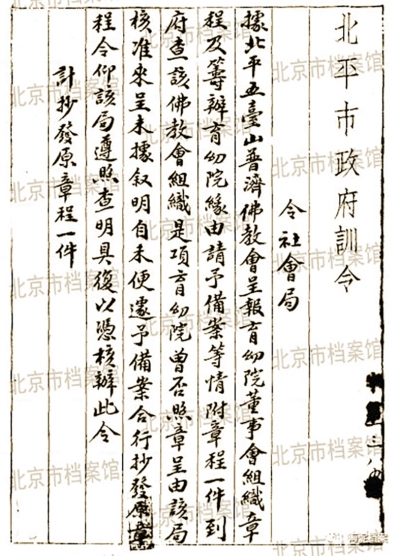 北平市政府訓令
令社會局
據北平五臺山普濟佛教會呈報育幼院董事會組織章
程及籌辦育幼院緣由請予備案等情附章程一件到
府查該佛教會組織是項育幼院曾否照章呈由該局
核准來呈未據叙明自未便遽予備案合行抄發原章
程令仰該局遵照查明具復以憑核辦此令
計抄發原章程一件
北京市档案馆